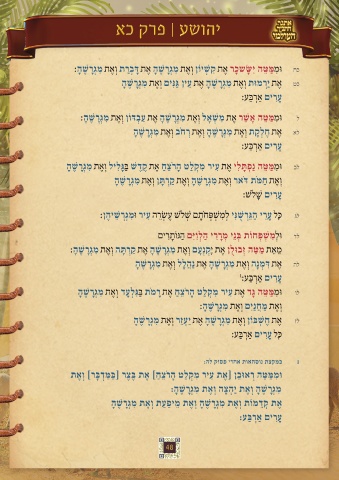 יהושע | פרק כא
כח וּמִמַּטֵּה יִשָּׂשכָר אֶת קִשְׁיוֹן וְאֶת מִגְרָשֶׁהָ אֶת דָּבְרַת וְאֶת מִגְרָשֶׁהָ:
כט אֶת יַרְמוּת וְאֶת מִגְרָשֶׁהָ אֶת עֵין גַּנִּים וְאֶת מִגְרָשֶׁהָ
עָרִים אַרְבַּע:
ל וּמִמַּטֵּה אָשֵׁר אֶת מִשְׁאָל וְאֶת מִגְרָשֶׁהָ אֶת עַבְדּוֹן וְאֶת מִגְרָשֶׁהָ:
לא אֶת חֶלְקָת וְאֶת מִגְרָשֶׁהָ וְאֶת רְחֹב וְאֶת מִגְרָשֶׁהָ
עָרִים אַרְבַּע:
לב וּמִמַּטֵּה נַפְתָּלִי אֶת עִיר מִקְלַט הָרֹצֵחַ אֶת קֶדֶשׁ בַּגָּלִיל וְאֶת מִגְרָשֶׁהָ
וְאֶת חַמֹּת דֹּאר וְאֶת מִגְרָשֶׁהָ וְאֶת קַרְתָּן וְאֶת מִגְרָשֶׁהָ
עָרִים שָׁלֹשׁ:
לג כָּל עָרֵי הַגֵּרְשֻׁנִּי לְמִשְׁפְּחֹתָם שְׁלֹשׁ עֶשְׂרֵה עִיר וּמִגְרְשֵׁיהֶן:
לד וּלְמִשְׁפְּחוֹת בְּנֵי מְרָרִי הַלְוִיִּם הַנּוֹתָרִים
מֵאֵת מַטֵּה זְבוּלֻן אֶת יָקְנְעָם וְאֶת מִגְרָשֶׁהָ אֶת קַרְתָּה וְאֶת מִגְרָשֶׁהָ:
לה אֶת דִּמְנָה וְאֶת מִגְרָשֶׁהָ אֶת נַהֲלָל וְאֶת מִגְרָשֶׁהָ
עָרִים אַרְבַּע:
לו וּמִמַּטֵּה גָד אֶת עִיר מִקְלַט הָרֹצֵחַ אֶת רָמֹת בַּגִּלְעָד וְאֶת מִגְרָשֶׁהָ
וְאֶת מַחֲנַיִם וְאֶת מִגְרָשֶׁהָ:
לז אֶת חֶשְׁבּוֹן וְאֶת מִגְרָשֶׁהָ אֶת יַעְזֵר וְאֶת מִגְרָשֶׁהָ
כָּל עָרִים אַרְבַּע:
במקצת נוסחאות אחרי פסוק לה:
וּמִמַּטֵּה רְאוּבֵן [אֶת עִיר מִקְלַט הָרֹצֵחַ] אֶת בֶּצֶר [בַּמִּדְבָּר] וְאֶת
מִגְרָשֶׁהָ וְאֶת יַהְצָה וְאֶת מִגְרָשֶׁהָ:
אֶת קְדֵמוֹת וְאֶת מִגְרָשֶׁהָ וְאֶת מֵיפָעַת וְאֶת מִגְרָשֶׁהָ
עָרִים אַרְבַּע:
48